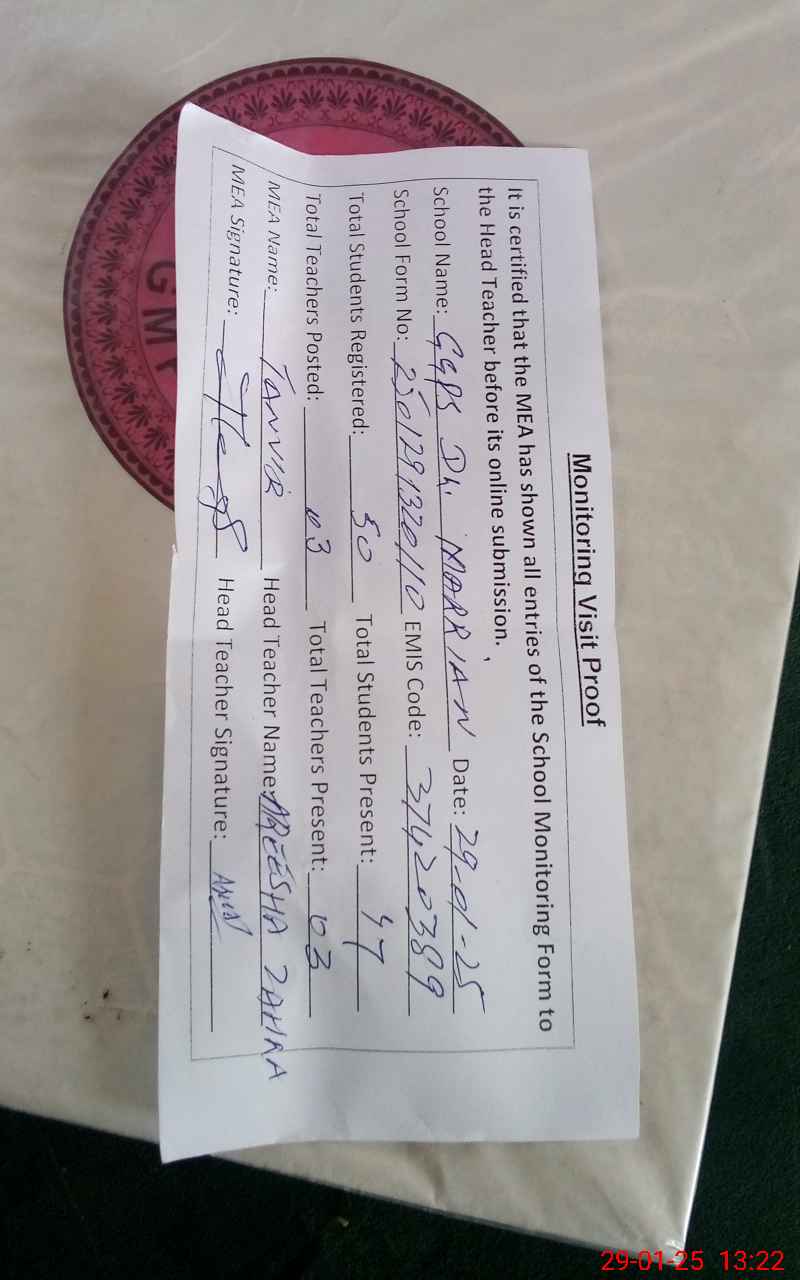 Monitoring Visit Proof
It is certified that the MEA has shown all entries of the School Monitoring Form to
the Head Teacher before its online submission.
School Name: GGPS Dh. MORRIAN Date: 29-01-25
School Form No: 2501291320110 EMIS Code: 37420389
Total Students Registered: 50 Total Students Present: 47
Total Teachers Posted: 03 Total Teachers Present: 03
MEA Name: TANVIR Head Teacher Name: AREESHA ZAHRA
MEA Signature: Head Teacher Signature:
GM
29-01-25 13:22